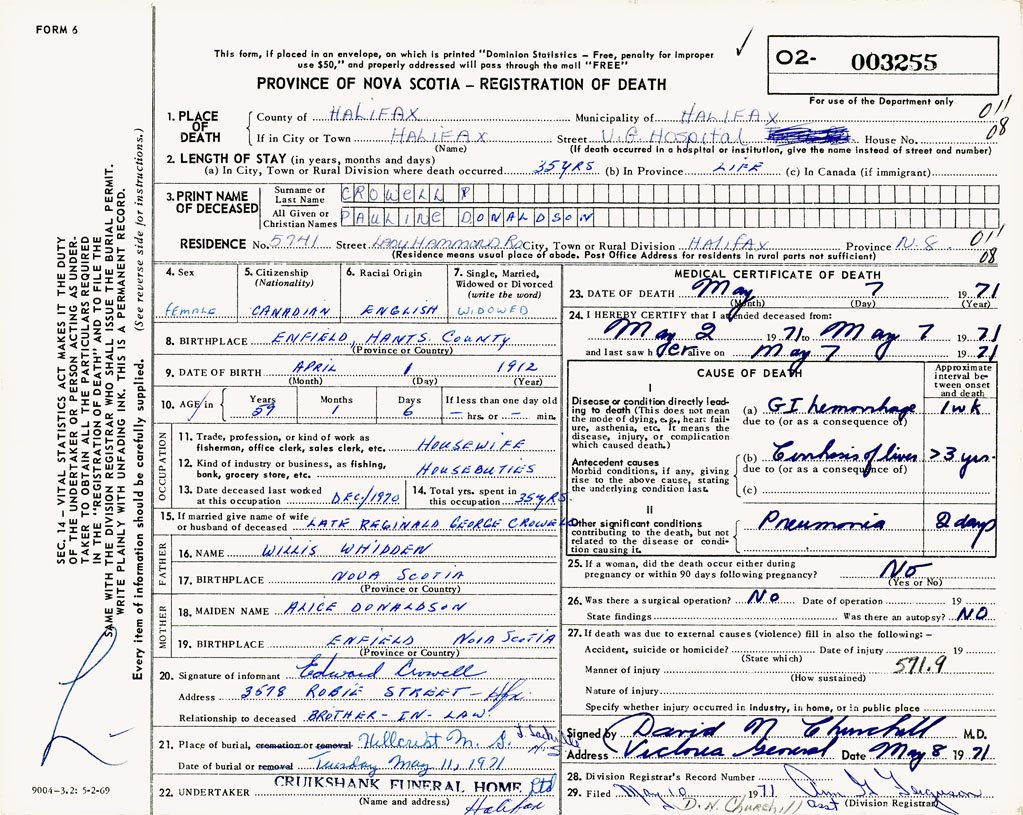 FORM 6
This form, if placed in an envelope, on which is printed "Dominion Statistics – Free, penalty for improper
use $50," and properly addressed will pass through the mail "FREE"
PROVINCE OF NOVA SCOTIA – REGISTRATION OF DEATH
02- 003255
For use of the Department only
1. PLACE OF DEATH
County of HALIFAX Municipality of HALIFAX 011
If in City or Town HALIFAX Street V.G. Hospital House No. 08
(Name) (If death occurred in a hospital or institution, give the name instead of street and number)
2. LENGTH OF STAY (in years, months and days)
(a) In City, Town or Rural Division where death occurred 35 YRS (b) In Province LIFE (c) In Canada (if immigrant)
3. PRINT NAME OF DECEASED
Surname or Last Name CROWELL
All Given or Christian Names PAULINE DONALDSON
RESIDENCE No. 5741 Street LADY HAMMOND RD City, Town or Rural Division HALIFAX Province N.S. 011
(Residence means usual place of abode. Post Office Address for residents in rural parts not sufficient) 08
4. Sex
FEMALE
5. Citizenship (Nationality)
CANADIAN
6. Racial Origin
ENGLISH
7. Single, Married, Widowed or Divorced (write the word)
WIDOWED
8. BIRTHPLACE ENFIELD, HANTS COUNTY
(Province or Country)
9. DATE OF BIRTH APRIL 1 1912
(Month) (Day) (Year)
10. AGE in Years Months Days If less than one day old
59 1 6 — hrs. or — min.
OCCUPATION
11. Trade, profession, or kind of work as
fisherman, office clerk, sales clerk, etc. HOUSEWIFE
12. Kind of industry or business, as fishing,
bank, grocery store, etc. HOUSEDUTIES
13. Date deceased last worked
at this occupation DEC/1970
14. Total yrs. spent in
this occupation 35 YRS
15. If married give name of wife
or husband of deceased LATE REGINALD GEORGE CROWELL
FATHER
16. NAME WILLIS WHIDDEN
17. BIRTHPLACE NOVA SCOTIA
(Province or Country)
MOTHER
18. MAIDEN NAME ALICE DONALDSON
19. BIRTHPLACE ENFIELD NOVA SCOTIA
(Province or Country)
20. Signature of informant Edward Crowell
Address 3678 ROBIE STREET – Hfx
Relationship to deceased BROTHER-IN-LAW
21. Place of burial, cremation or removal Hillcrest M. G. Sackville N.S.
Date of burial or removal Tuesday May 11, 1971
22. UNDERTAKER CRUIKSHANK FUNERAL HOME Ltd
(Name and address) Halifax
MEDICAL CERTIFICATE OF DEATH
23. DATE OF DEATH May 7 1971
(Month) (Day) (Year)
24. I HEREBY CERTIFY that I attended deceased from:
May 2 1971 to May 7 1971
and last saw her alive on May 7 1971
CAUSE OF DEATH
Approximate interval between onset and death
I
Disease or condition directly leading to death (This does not mean the mode of dying, e.g., heart failure, asthenia, etc. It means the disease, injury, or complication which caused death.)
(a) GI hemorrhage 1 wk
due to (or as a consequence of)
Antecedent causes
Morbid conditions, if any, giving rise to the above cause, stating the underlying condition last.
(b) Cirrhosis of liver >3 yrs.
due to (or as a consequence of)
(c)
II
Other significant conditions
contributing to the death, but not related to the disease or condition causing it.
Pneumonia 2 days
25. If a woman, did the death occur either during
pregnancy or within 90 days following pregnancy? NO
(Yes or No)
26. Was there a surgical operation? NO Date of operation 19
State findings Was there an autopsy? NO
27. If death was due to external causes (violence) fill in also the following: –
Accident, suicide or homicide? Date of injury 19
(State which)
Manner of injury 571.9
(How sustained)
Nature of injury
Specify whether injury occurred in industry, in home, or in public place
Signed by David N Churchill M.D.
Address Victoria General Date May 8 1971
28. Division Registrar's Record Number
29. Filed May 10 1971 Ann G Ferguson
D. N. CHURCHILL asst (Division Registrar)
SEC. 14 – VITAL STATISTICS ACT MAKES IT THE DUTY
OF THE UNDERTAKER OR PERSON ACTING AS UNDER-
TAKER TO OBTAIN ALL THE PARTICULARS REQUIRED
IN THE "REGISTRATION OF DEATH" AND TO FILE THE
SAME WITH THE DIVISION REGISTRAR WHO SHALL ISSUE THE BURIAL PERMIT.
WRITE PLAINLY WITH UNFADING INK. THIS IS A PERMANENT RECORD.
Every item of information should be carefully supplied. (See reverse side for instructions.)
9004-3.2: 5-2-69